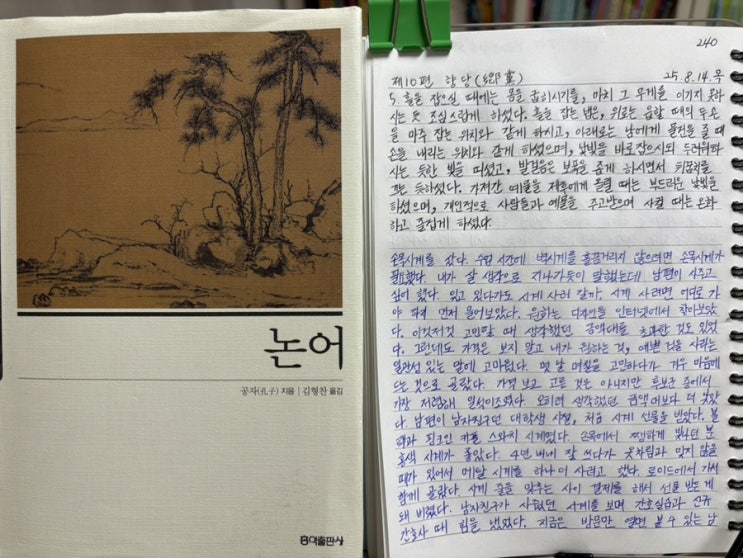 논어
공자(孔子) 지음 | 김형찬 옮김
홍익출판사
240
제10편 향당(鄕黨) 25.8.14.목
5. 홀을 잡으실 때에는 몸을 굽히시기를, 마치 그 무게를 이기지 못하
시는 듯 조심스럽게 하셨다. 홀을 잡는 법은, 위로는 읍할 때의 두 손
을 마주 잡는 위치와 같게 하시고, 아래로는 남에게 물건을 줄 때
손을 내리는 위치와 같게 하셨으며, 낯빛을 바로잡으시되 두려워하
시는 듯한 빛을 띠셨고, 발걸음은 보폭을 좁게 하시면서 뒤꿈치를
끄는 듯하셨다. 가져간 예물을 제후에게 올릴 때는 부드러운 낯빛을
하셨으며, 개인적으로 사람들과 예물을 주고받으며 사귈 때는 온화
하고 즐겁게 하셨다.
손목시계를 샀다. 수업 시간에 벽시계를 흘끔거리지 않으려면 손목시계가
필요했다. 내가 잘 생각으로 지나가듯이 말했는데 남편이 사주고
싶어 했다. 있고 있다가도 시계 사러 갈까, 시계 사려면 어디로 가
야 하지 먼저 물어보았다. 원하는 디자인을 인터넷에서 찾아보았
다. 이것저것 고민할 때 생각했던 금액대를 초과한 것도 있었
다. 그런데도 가격은 보지 말고 내가 원하는 것, 예쁜 걸 사라는
일관성 있는 말에 고마웠다. 몇 날 며칠을 고민하다가 겨우 마음에
드는 것으로 골랐다. 가격 보고 고른 것은 아니지만 후보군 중에서
가장 저렴해 일석이조였다. 오히려 생각했던 금액대보다 더 낮았
다. 남편이 남자친구던 대학생 시절, 처음 시계 선물을 받았다. 블
랙과 핑크인 커플 스와치 시계였다. 손목에서 쨍하게 빛나던 분
홍색 시계가 좋았다. 4년 내내 잘 쓰다가 옷차림과 맞지 않을
때가 있어서 메탈 시계를 하나 더 사려고 했다. 로이드에서 가서
함께 골랐다. 시계 줄을 맞추는 사이 결제를 해서 선물 받은 게
돼 버렸다. 남자친구가 사줬던 시계를 보며 간호실습과 신규
간호사 때 힘을 냈었다. 지금은 방문만 열면 볼 수 있는 남